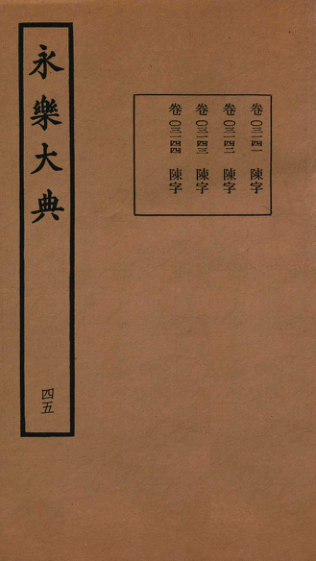 卷〇三一四一　陳字
卷〇三一四二　陳字
卷〇三一四三　陳字
卷〇三一四四　陳字
永樂大典
四五